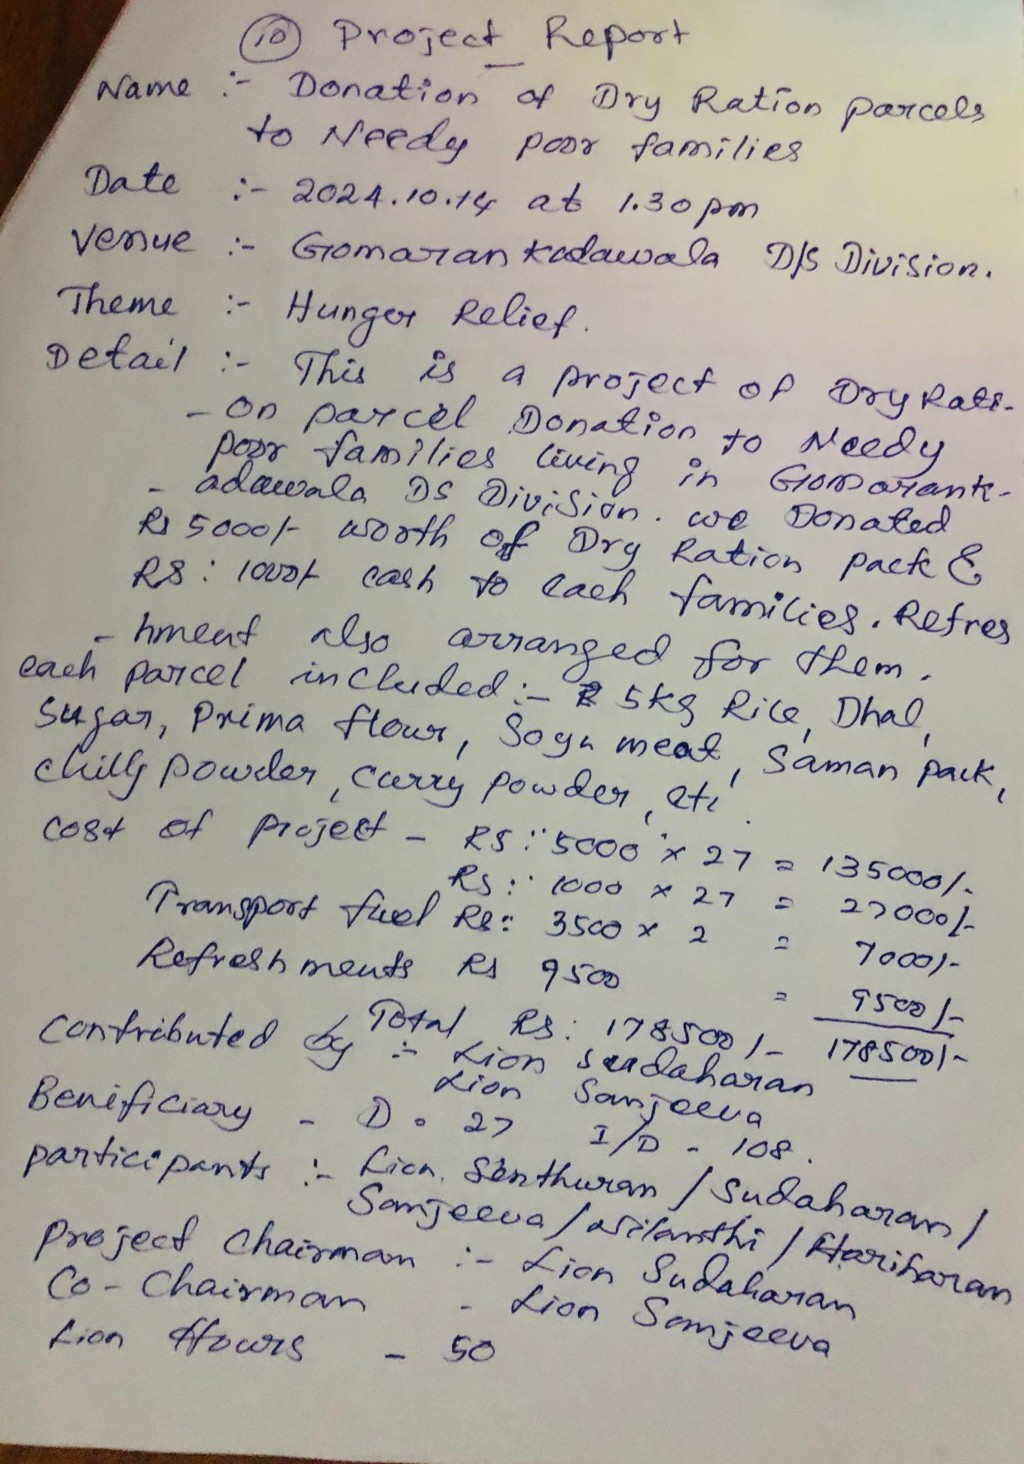 10 Project Report
Name :- Donation of Dry Ration parcels
to Needy poor families
Date :- 2024.10.14 at 1.30 pm
Venue :- Gomarankadawala D/S Division.
Theme :- Hunger Relief.
Detail :- This is a project of Dry Rati-
- on parcel Donation to Needy
poor families living in Gomarank-
- adawala DS Division. we Donated
Rs 5000/- worth of Dry Ration pack &
RS: 1000/- cash to each families. Refres
- hment also arranged for them.
each parcel included :- 5kg Rice, Dhal,
Sugar, Prima flour, Soya meat, Saman pack,
chilly powder, curry powder, etc.
cost of project - RS: 5000 x 27 = 135000/-
Rs: 1000 x 27 = 27000/-
Transport fuel Rs: 3500 x 2 = 7000/-
Refreshments Rs 9500 = 9500/-
Total Rs: 178500/- 178500/-
Contributed by :- Lion Sudaharan
Lion Sanjeeva
Benificiary - D. 27 I/D - 108.
participants :- Lion. Senthuran / Sudaharan /
Sanjeeva / Nilanthi / Hariharan
Project Chairman :- Lion Sudaharan
Co-Chairman - Lion Sanjeeva
Lion Hours - 50